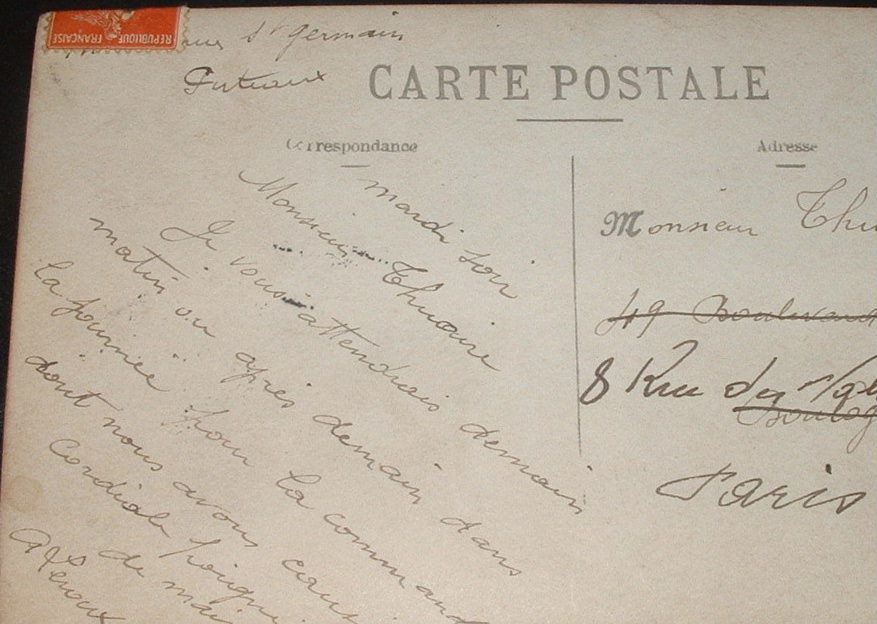 REPUBLIQUE FRANÇAISE
rue St germain
Puteaux
CARTE POSTALE
Correspondance
Adresse
mardi soir
Monsieur Thuaire
Je vous attendrais demain
matin ou après demain dans
la journée pour la command
dont nous avons caus
Cordiale poigné
de mai
Monsieur Thu
49 Boulevard
8 Rue des
Boulog
Paris